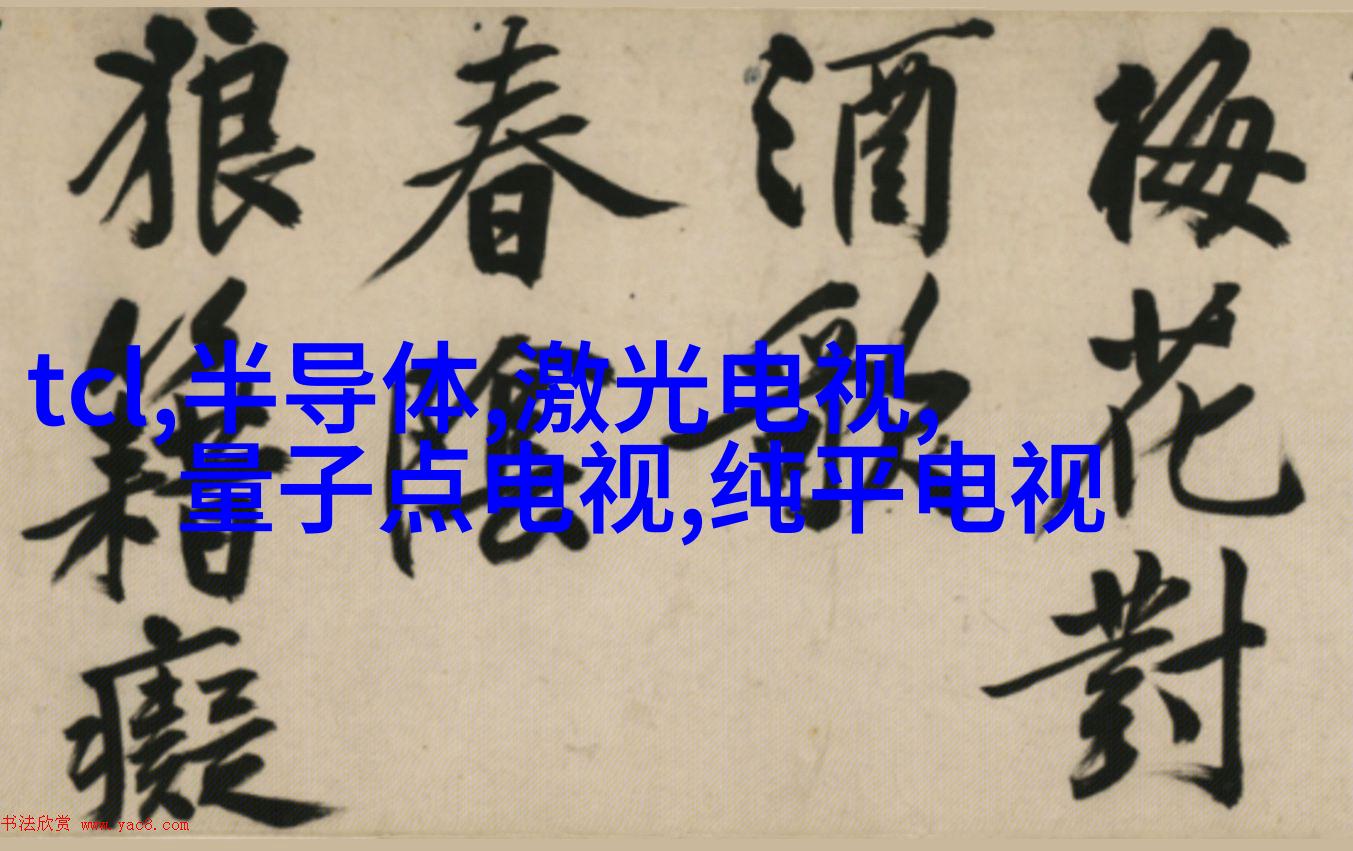 梅花對
酒歌
春陰
狼籍癡
tcl,半导体,激光电视,
量子点电视,纯平电视
书法欣赏 www.yac8.com